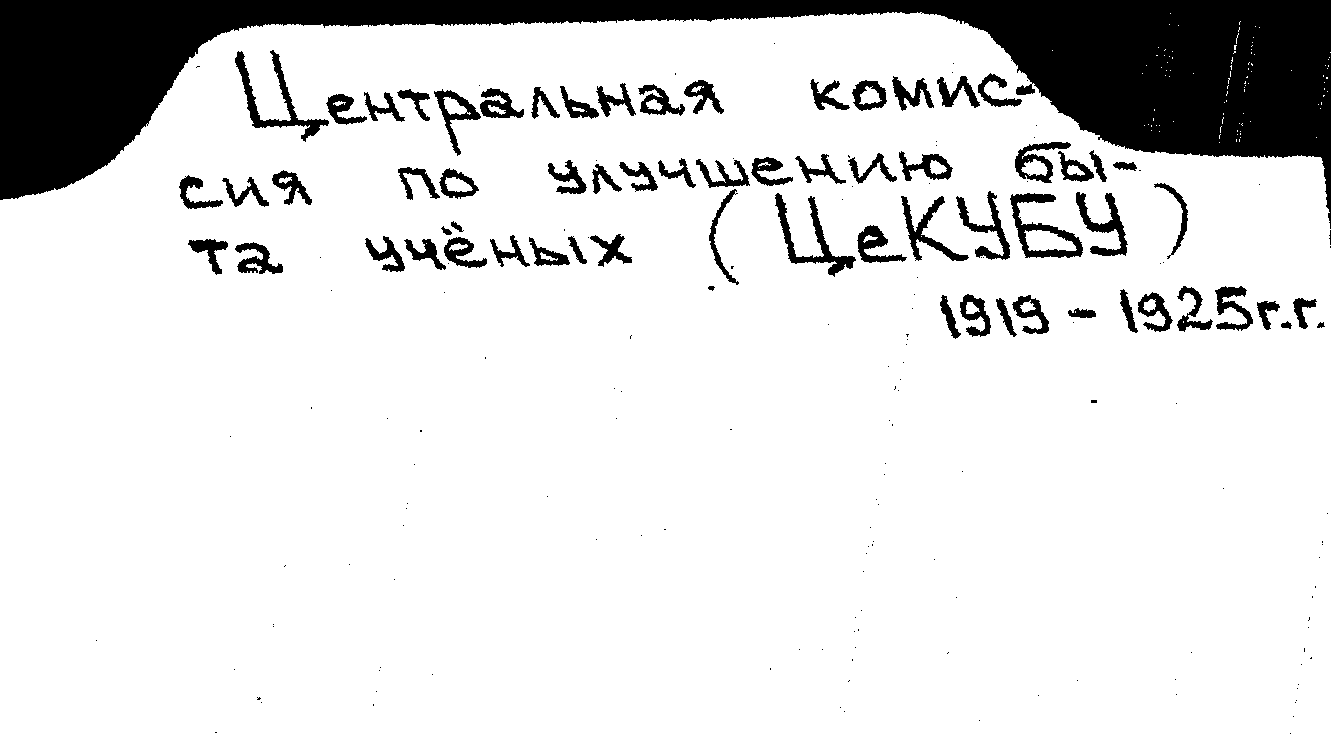 Центральная комис-
сия по улучшению бы-
та учёных (ЦеКУБУ)
1919 - 1925г.г.